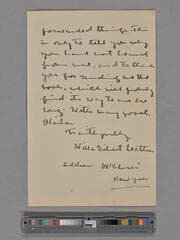 forwarded things. This
is only to tell you why
you have not heard
from me, and to thank
you for sending me the
book, which will surely
find its way to me ere
long. With many good
wishes
Faithfully
Willa Sibert Cather
address McClure's
New York